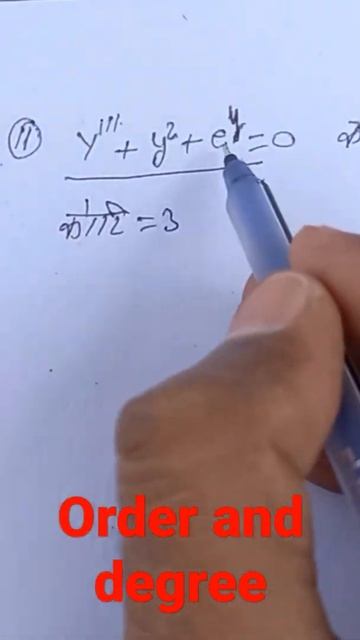 11 y''' + y² + e^y = 0
= 3
Order and
degree